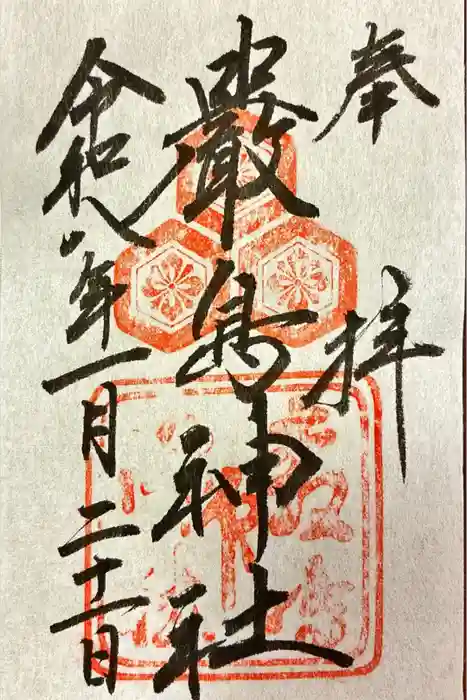 奉拝
厳島神社
令和八年一月二十一日